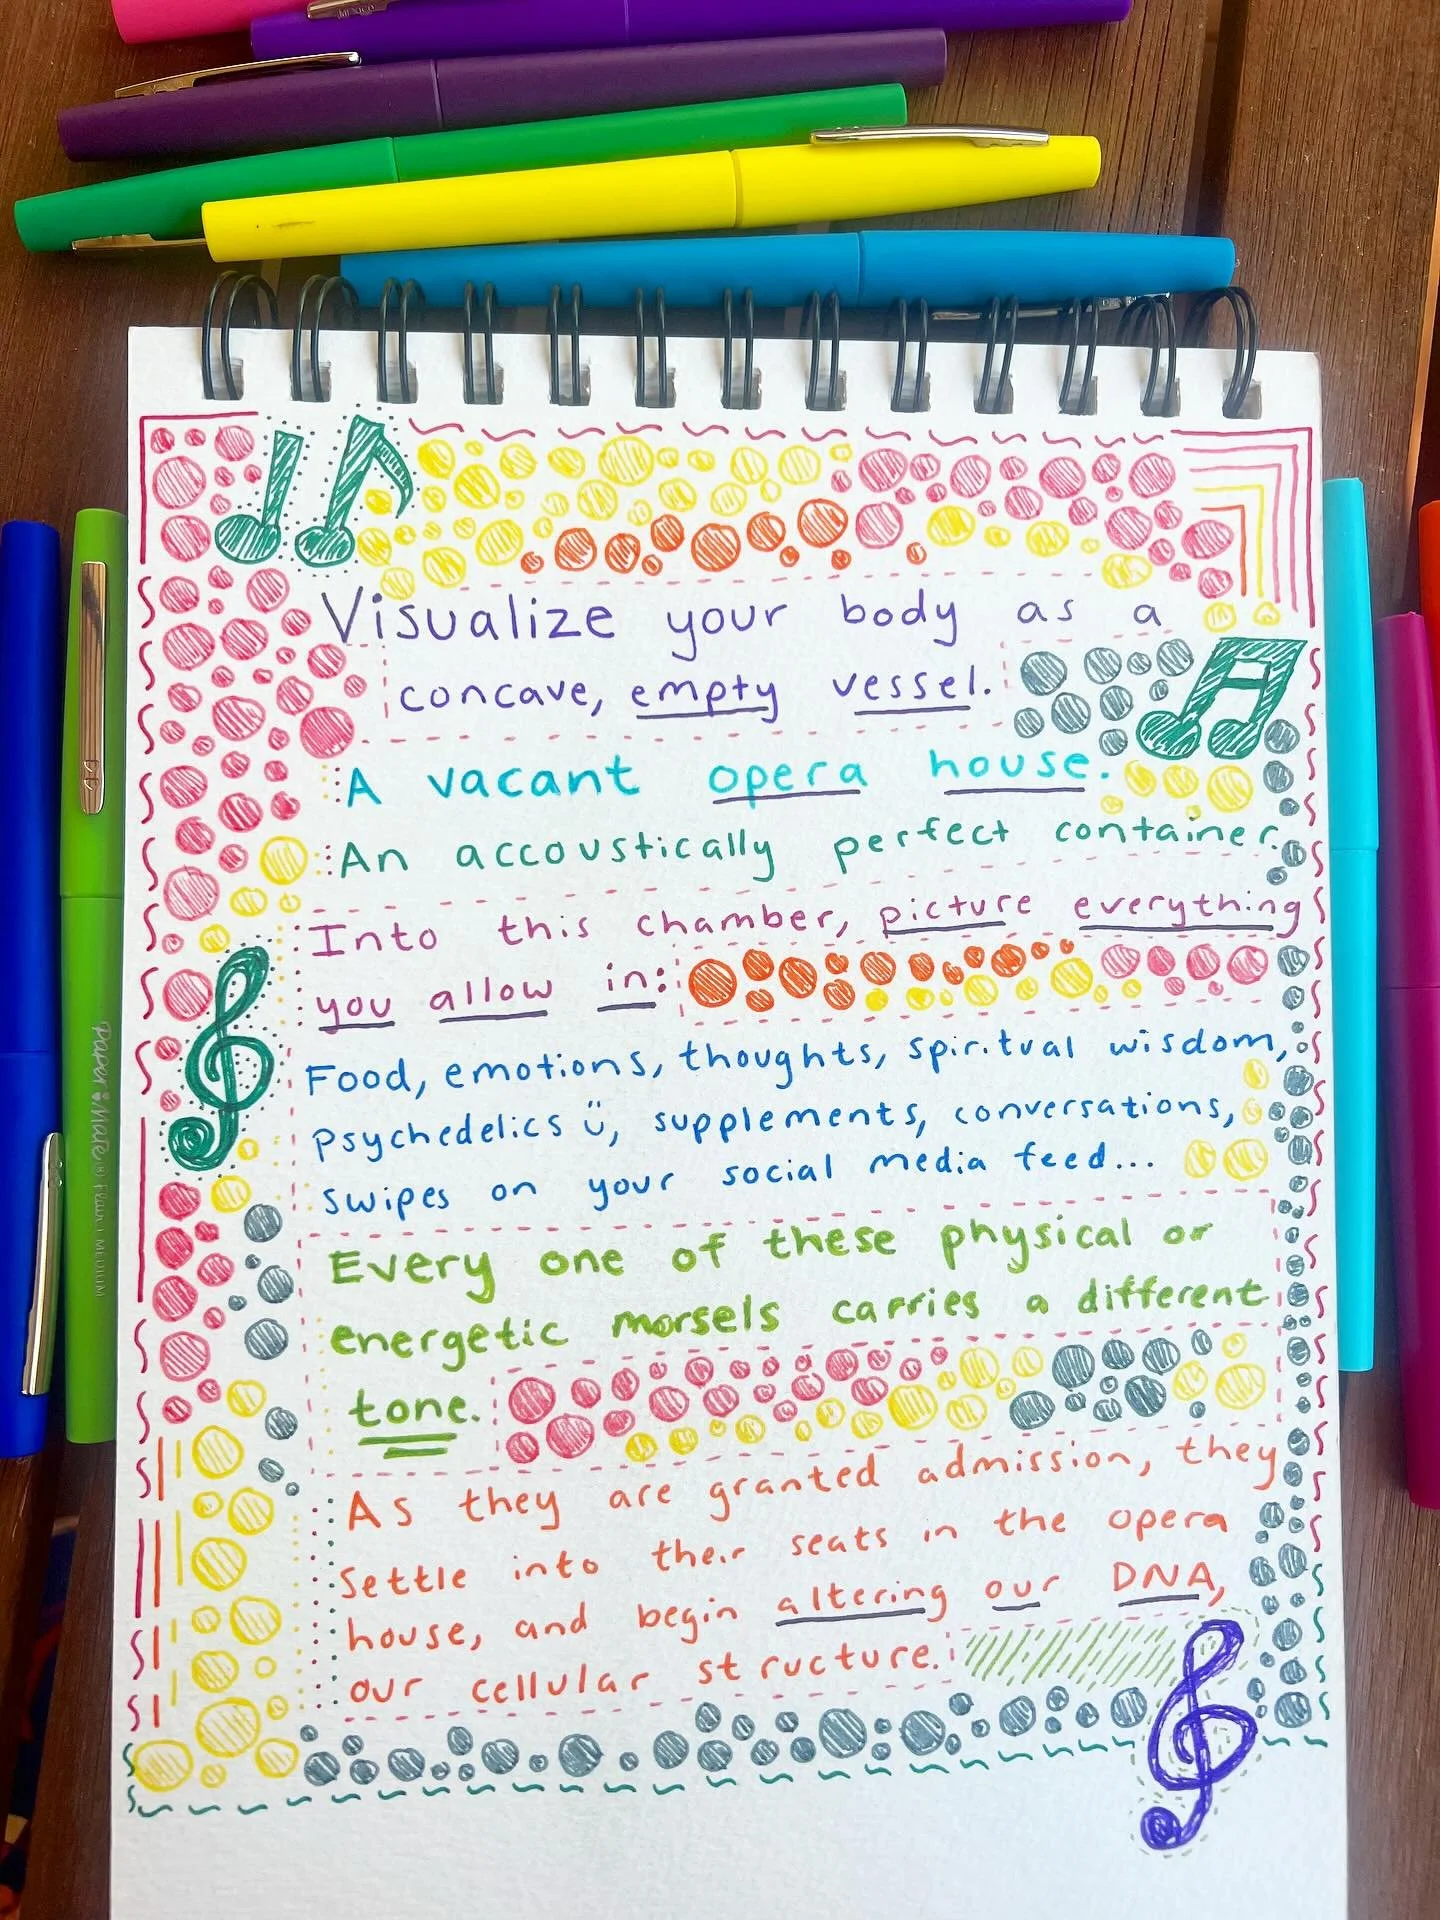 MEXICO
Visualize your body as a
concave, empty vessel.
A vacant opera house.
An accoustically perfect container.
Into this chamber, picture everything
you allow in:
Food, emotions, thoughts, spiritual wisdom,
psychedelics ü, supplements, conversations,
swipes on your social media feed...
Every one of these physical or
energetic morsels carries a different
tone.
As they are granted admission, they
settle into their seats in the opera
house, and begin altering our DNA,
our cellular structure.
Paper:Mate® Flair. MEDIUM